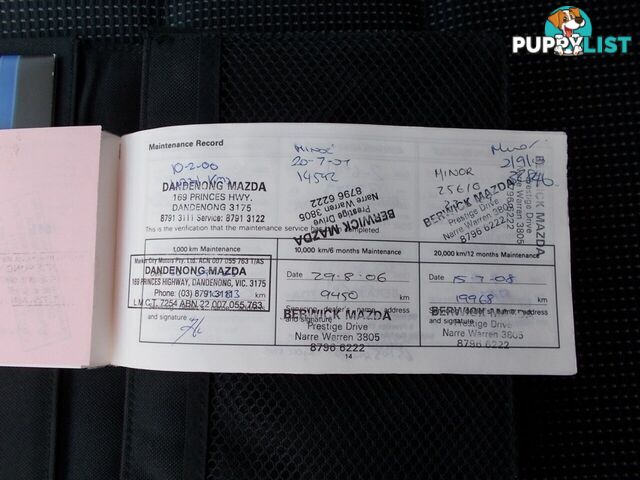 PUPPYLIST
Maintenance Record
MINOR
20-7-07
14542
DANDENONG MAZDA
169 PRINCES HWY.
DANDENONG 3175
8791 3111 Service: 8791 3122
BERWICK MAZDA
Prestige Drive
Narre Warren 3805
8796 6222
MINOR
25610
BERWICK MAZDA
Prestige Drive
Narre Warren 3805
8796 6222
Minor
BERWICK MAZDA
Prestige Drive
Narre Warren 3805
8796 6222
This is the verification that the maintenance service has been completed
1,000 km Maintenance
10,000 km/6 months Maintenance
20,000 km/12 months Maintenance
City Motors Pty. Ltd. ACN 007 055 763 T/AS
DANDENONG MAZDA
169 PRINCES HIGHWAY, DANDENONG, VIC. 3175
Phone: (03) 8791
L.M.C.T. 7254 ABN 22 007 055 763
and signature
Date 29-8-06
9450 km
and signature
BERWICK MAZDA
Prestige Drive
Narre Warren 3805
8796 6222
Date 15-7-08
19968 km
and signature
BERWICK MAZDA
Prestige Drive
Narre Warren 3805
8796 6222
14